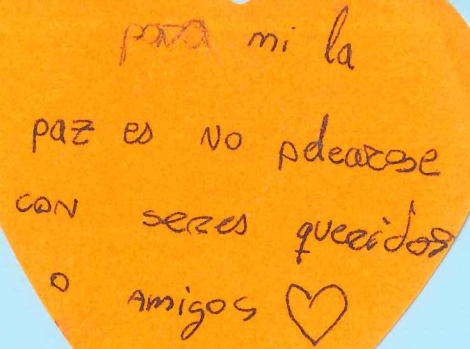 para mi la
paz es no pelearse
con seres queridos
o amigos ♡